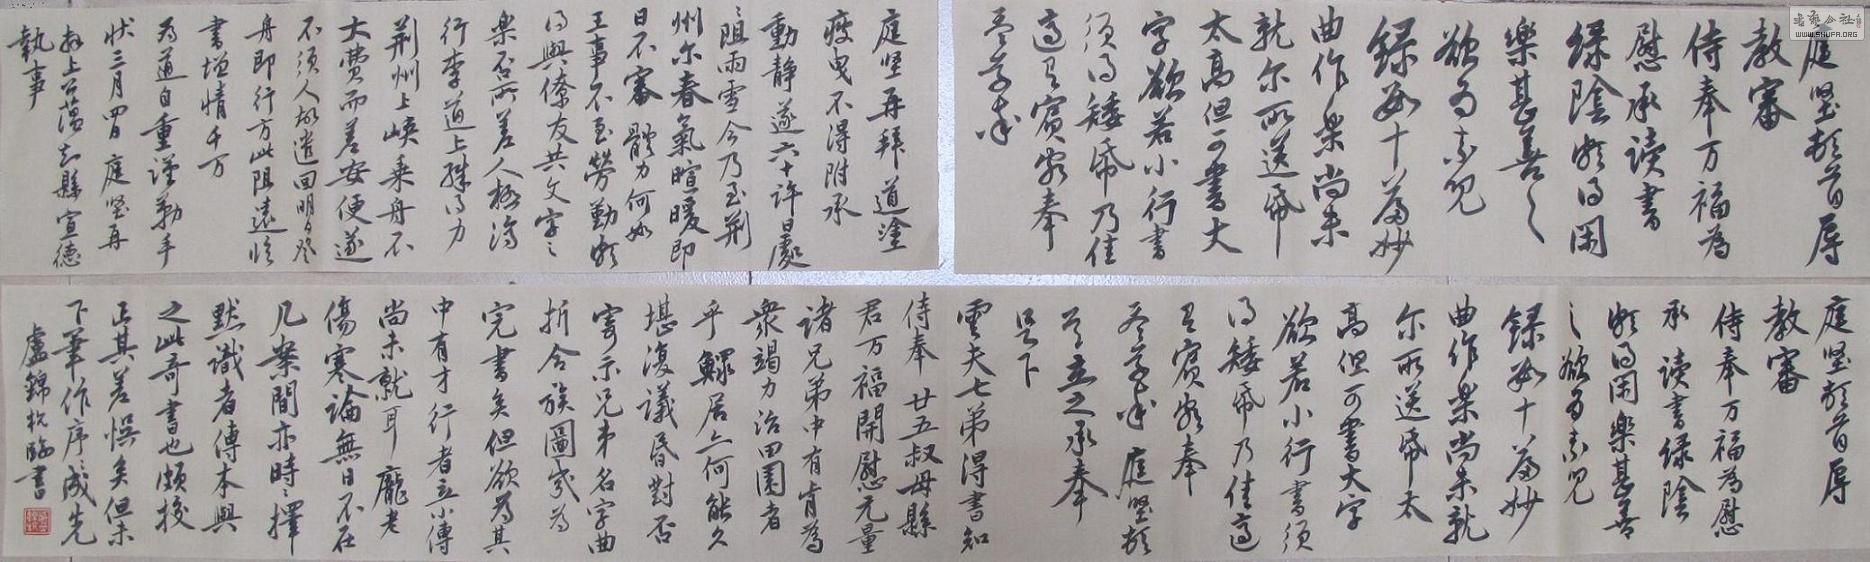 庭堅頓首辱
教審
侍奉万福為
慰承读書
緑陰頗得閑
樂甚善〻
欲為素兒
録數十篇妙
曲作樂尚未
就尔所送紙
太高但可書大
字欲若小行書
须得矮紙乃佳
適有賓客奉
答草率
庭堅再拜道塗
疲曳不得附承
動静遂六十許日處
〻阻雨雪今乃至荆
州尔春氣暄暖即
日不審體力何如
王事不至勞勤頗
得與僚友共文字之
樂否所差人極濟
行李道上殊得力
荆州上峡乘舟不
大费而差安便遂
不须人故遣回明日登
舟即行方此阻遠臨
書增情千万
為道自重謹勒手
状三月四日庭堅再
拜上公藴知縣宣德
執事
庭堅頓首辱
教審
侍奉万福為慰
承读書緑陰
頗得閑樂甚善
〻欲為素兒
録數十篇妙
曲作樂尚未就
尔所送紙太
高但可書大字
欲若小行書须
得矮紙乃佳適
有賓客奉
答草率庭堅頓
首立之承奉
足下
雲夫七弟得書知
侍奉廿五叔母縣
君万福開慰无量
諸兄弟中有肯為
衆竭力治田園者
乎鰥居亦何能久
堪復議昏對否
寄示兄弟名字曲
折合族圖或為
完書矣但欲為其
中有才行者立小傳
尚未就耳龐老
傷寒論無日不在
几案間亦時〻擇
默識者傳本與
之此奇書也頗校
正其差悞矣但未
下筆作序成先
盧錦松臨書
书艺公社
www.SHUFA.ORG